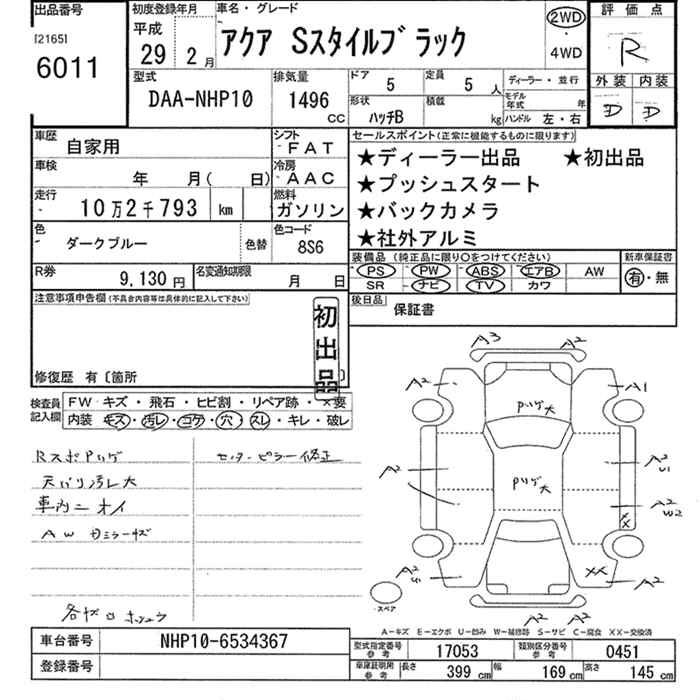 出品番号
[2165]
6011
初度登録年月
平成
29 2月
車名・グレード
アクア Sスタイルブラック
2WD
・
4WD
評価点
R
外装 内装
D D
型式
DAA-NHP10
排気量
1496
CC
ドア 5
定員 5 人
形状 ハッチB
積載 kg
ディーラー・並行
モデル年式 年
ハンドル 左・右
車歴 自家用
シフト
FAT
車検 年 月( 日)
冷房
AAC
走行
10万2千793 km
燃料
ガソリン
色
ダークブルー
色替
色コード
8S6
R券 9,130 円
名変通知期限 月 日
セールスポイント(正常に機能するものに限ります)
★ディーラー出品 ★初出品
★プッシュスタート
★バックカメラ
★社外アルミ
装備品 (純正品に限り○をつけてください)
新車保証書
PS PW ABS エアB AW
SR ナビ TV カワ
有・無
後日品
保証書
注意事項申告欄(不具合内容等は具体的に記入して下さい)
初出品
修復歴 有〔箇所 〕
検査員記入欄
FW キズ・飛石・ヒビ割・リペア跡・×要
内装 キズ・汚レ・コゲ・穴・スレ・キレ・破レ
RスポPハゲ
センターピラー修正
天バリ汚レ大
車内ニオイ
AW ドミラーキズ
A3 A2
A2 A1
Pハゲ大
A2 A2
U1
Pハゲ大
A2
W2
XX
A2
XX
A2
A2 A2
・スペア
A-キズ E-エクボ U-凹み W-補修跡 S-サビ C-腐食 XX-交換済
車台番号 NHP10-6534367
登録番号
型式指定番号 参考 17053
類別区分番号 参考 0451
車庫証明用 参考 長さ 399 cm 幅 169 cm 高さ 145 cm